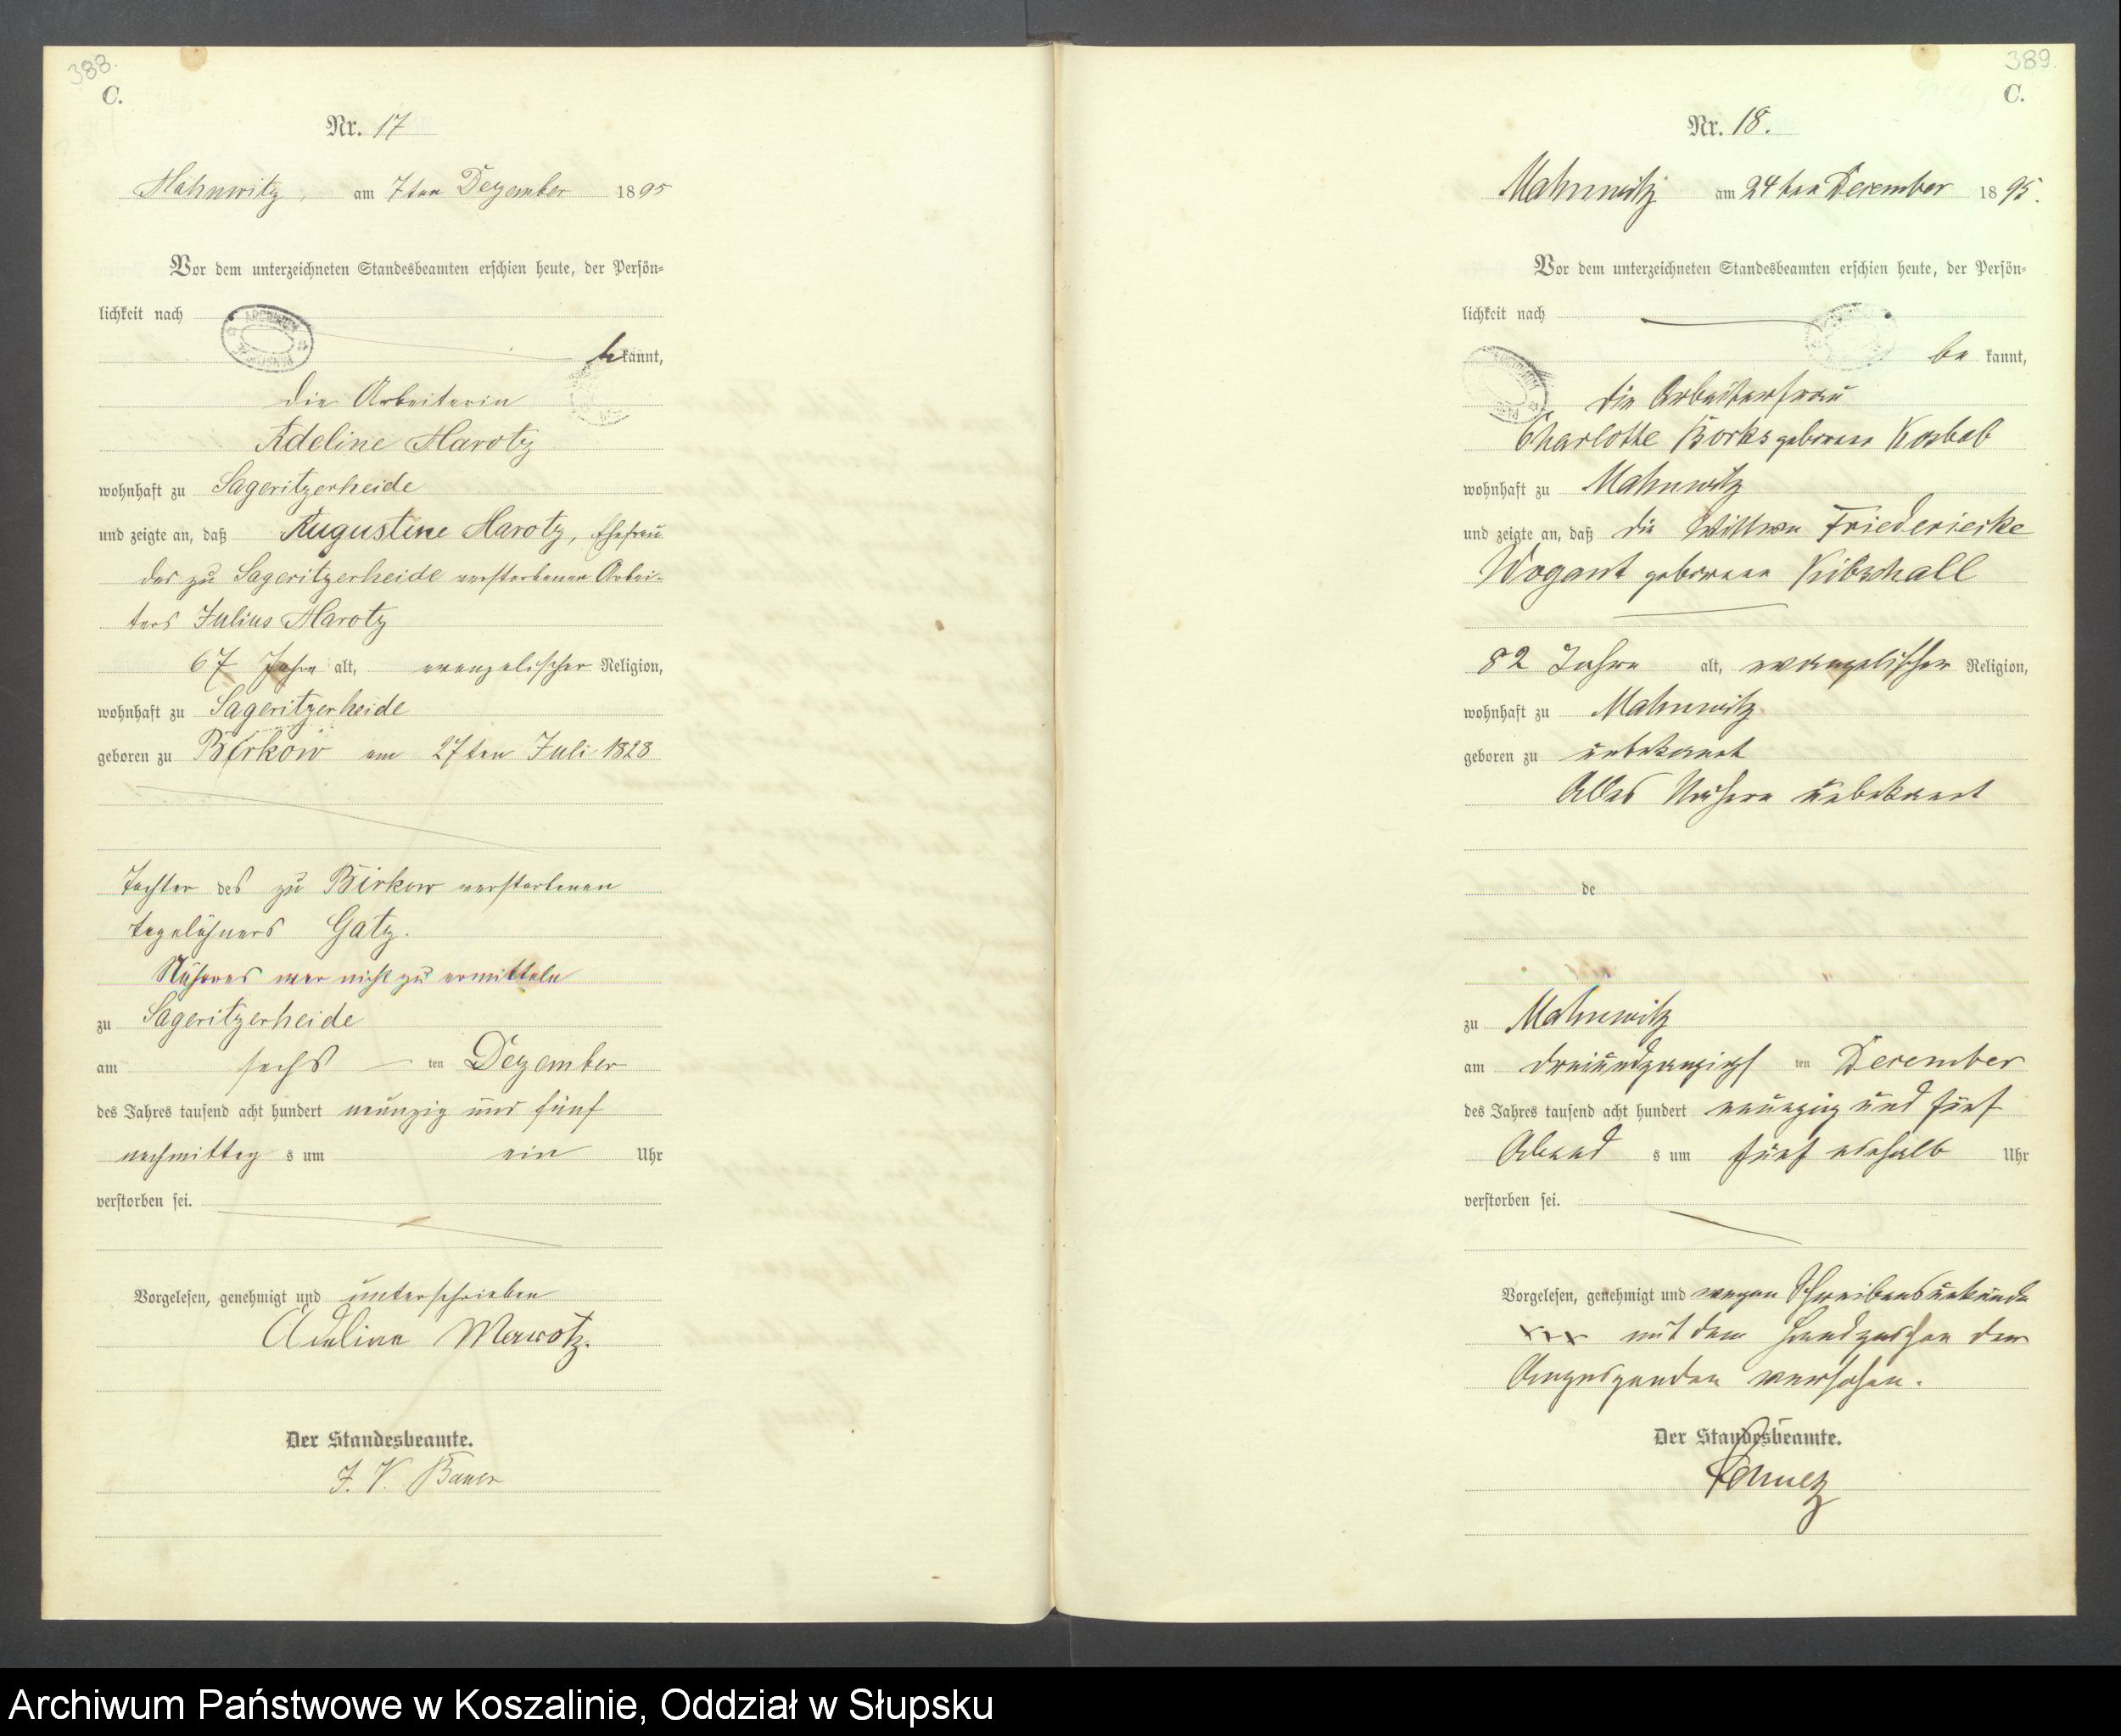 388.
C.
Nr. 17
Mahnwitz, am 7ten Dezember 1895
Vor dem unterzeichneten Standesbeamten erschien heute, der Persön-
lichkeit nach
bekannt,
die Arbeiterin
Adeline Marotz
wohnhaft zu Sageritzerheide
und zeigte an, daß Augustine Marotz, Ehefrau
des zu Sageritzerheide verstorbenen Arbei-
ters Julius Marotz
67 Jahre alt, evangelischer Religion,
wohnhaft zu Sageritzerheide
geboren zu Birkow am 27ten Juli 1828
Tochter des zu Birkow verstorbenen
Tagelöhners Gatz.
Näheres war nicht zu ermitteln
zu Sageritzerheide
am sechs ten Dezember
des Jahres tausend acht hundert neunzig und fünf
nachmittag s um ein Uhr
verstorben sei.
Vorgelesen, genehmigt und unterschrieben
Adeline Marotz.
Der Standesbeamte.
J. V. Bauer
389.
C.
Nr. 18.
Mahnwitz am 24ten December 1895.
Vor dem unterzeichneten Standesbeamten erschien heute, der Persön-
lichkeit nach
be kannt,
die Arbeiterfrau
Charlotte Borks geborene Kosbab
wohnhaft zu Mahnwitz
und zeigte an, daß die Wittwe Friederieke
Wogant geborene Kübschall
82 Jahre alt, evangelischer Religion,
wohnhaft zu Mahnwitz
geboren zu unbekannt
Alles Nähere unbekannt
de
zu Mahnwitz
am dreiundzwanzigs ten December
des Jahres tausend acht hundert neunzig und fünf
Abend s um fünf einhalb Uhr
verstorben sei.
Vorgelesen, genehmigt und wegen Schreibensunkunde
xxx mit dem Handzeichen der
Anzeigenden versehen.
Der Standesbeamte.
Archiwum Państwowe w Koszalinie, Oddział w Słupsku